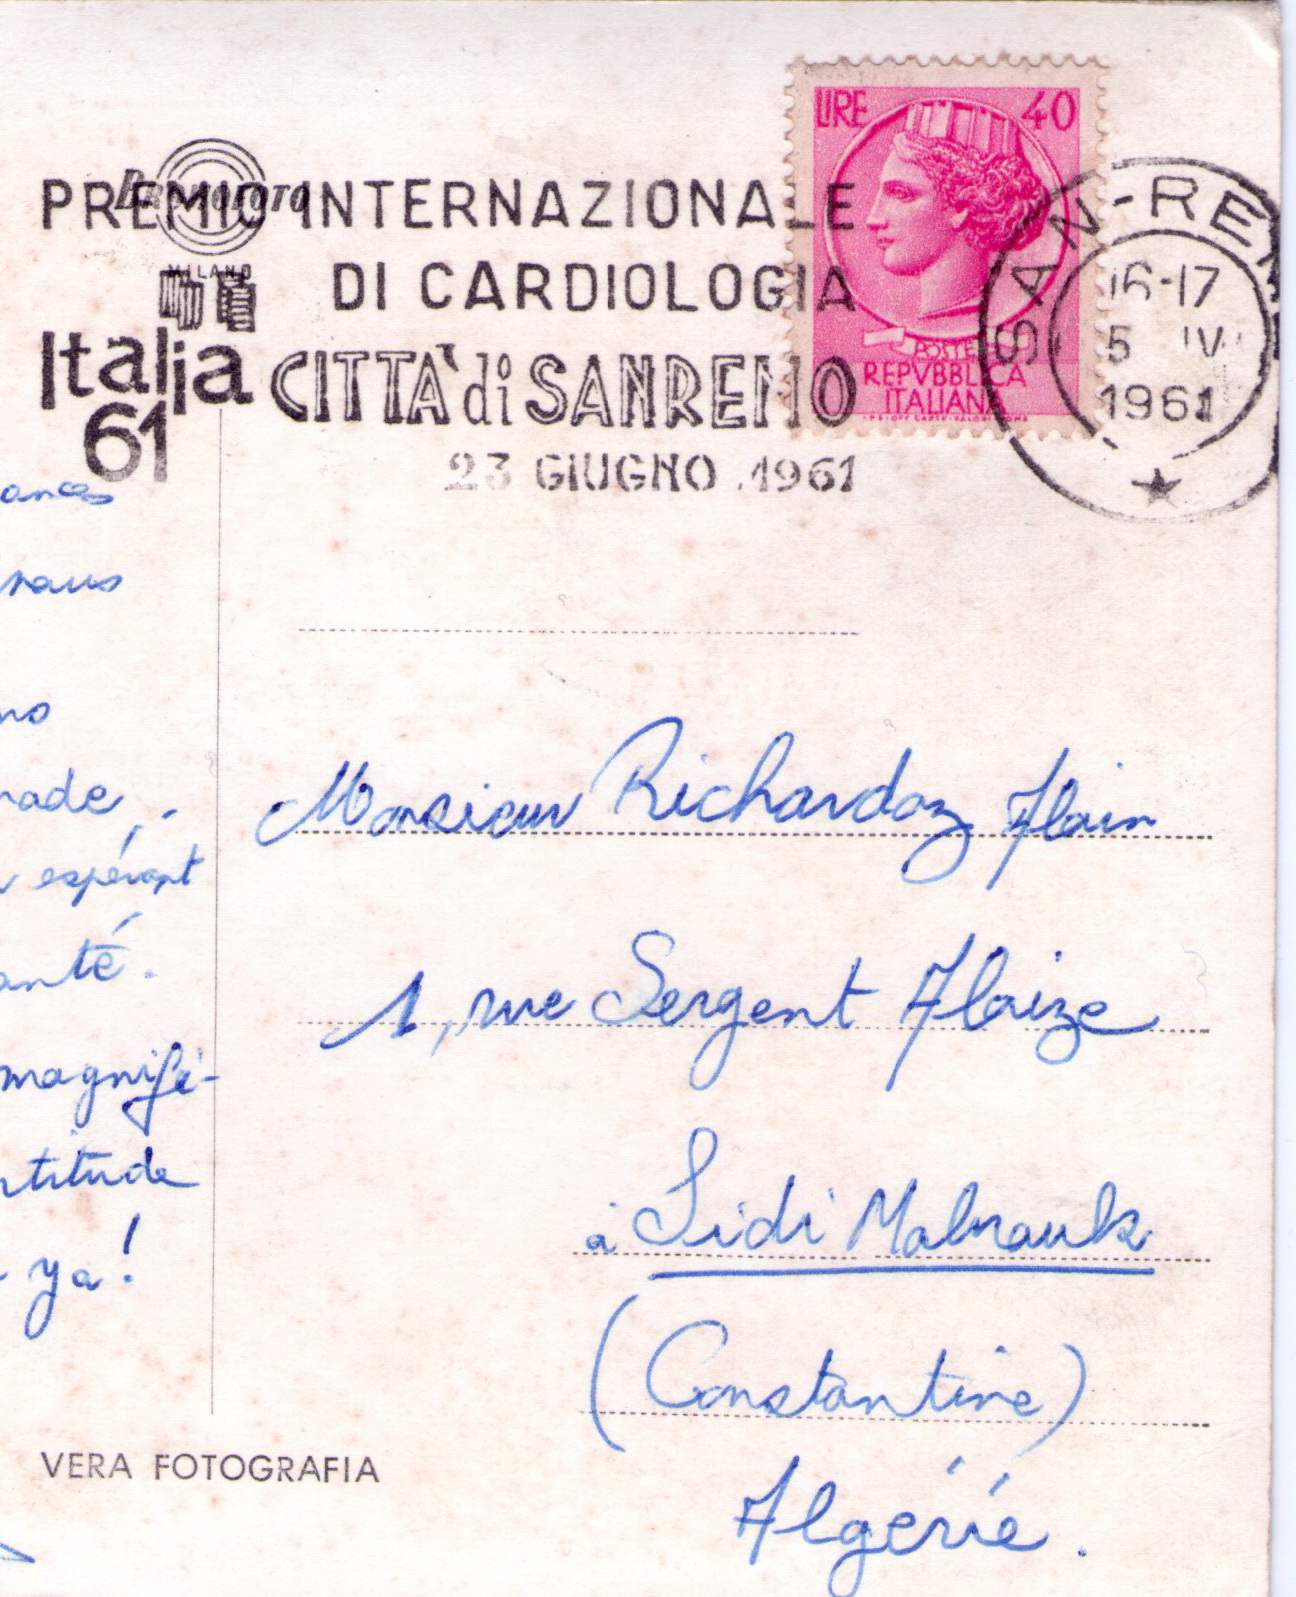 LIRE 40
BROMOFOTO
MILANO
PREMIO INTERNAZIONALE
DI CARDIOLOGIA
CITTA' di SANREMO
23 GIUGNO 1961
Italia
61
SAN-REMO
16-17
5 IV
1961
POSTE
REPVBBLICA
ITALIANA
ances
no
nade,
espérant
anté.
magnifi-
titude
ya!
Monsieur Richardoz Alain
1, rue Sergent Alaize
à Sidi Mabrouk
(Constantine)
Algérie.
VERA FOTOGRAFIA